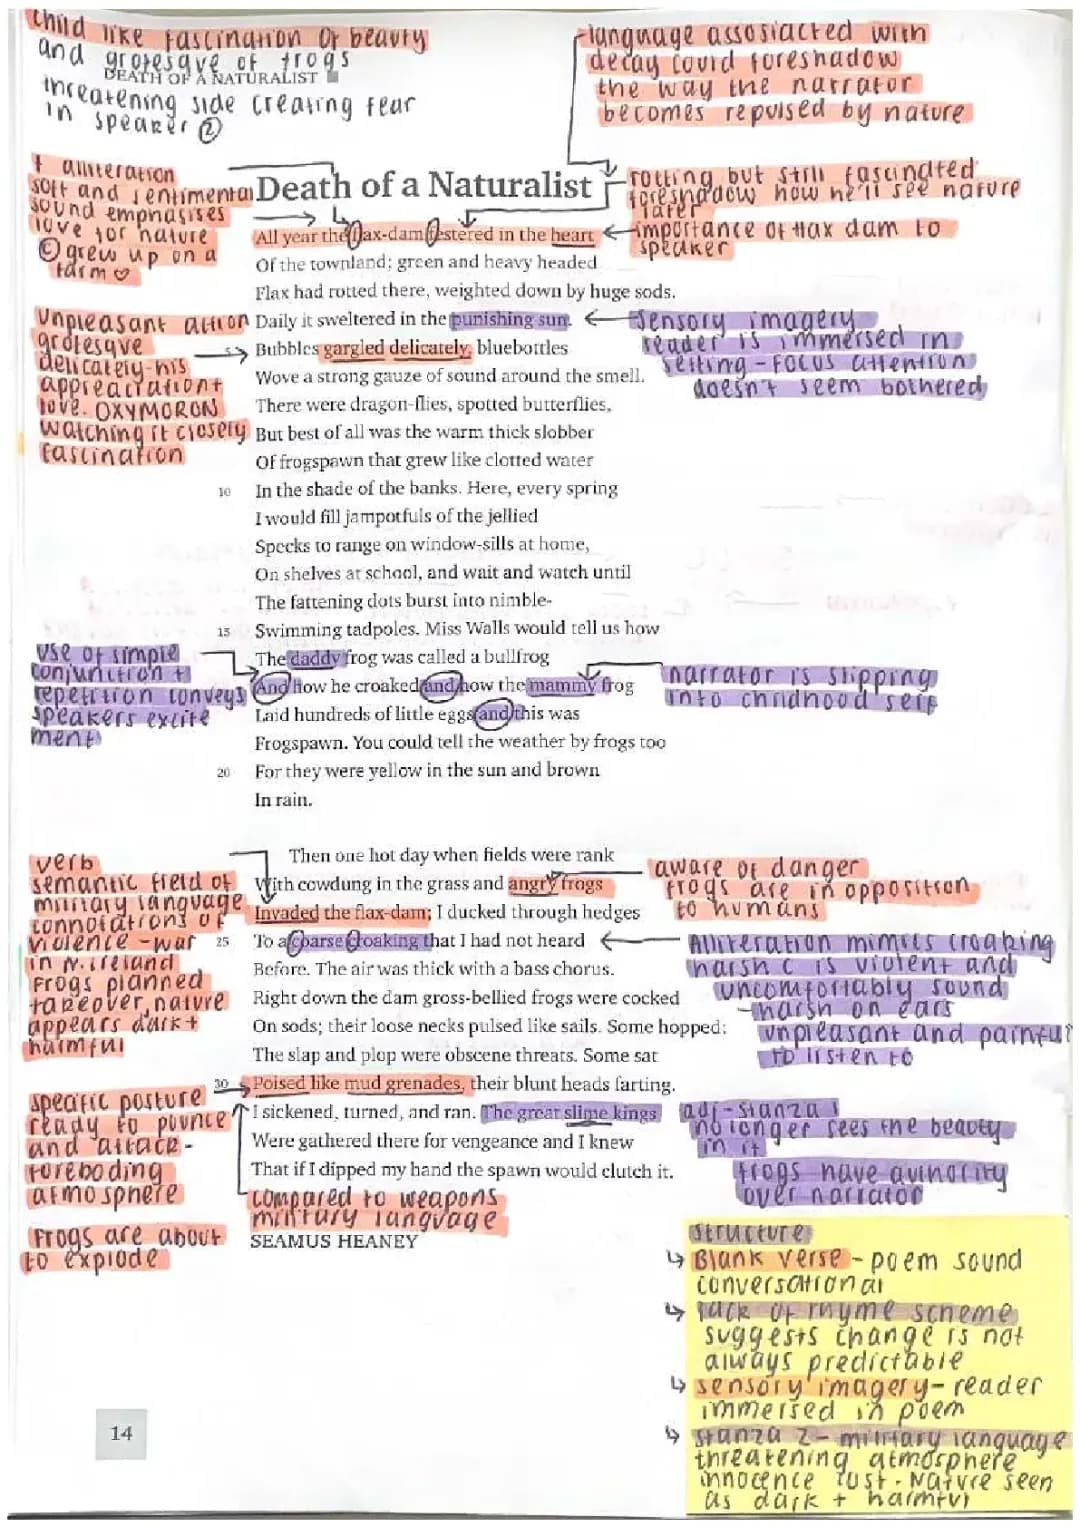 child like fascination of beauty
and grotesque of frogs
DEATH OF A NATURALIST
threatening side creating fear
in speaker ②
language assosiacted with
decay could foreshadow
the way the narrator
becomes repulsed by nature
+ alliteration
soft and sentimental
sound emphasises
love for nature
© grew up on a
farm ♡
Death of a Naturalist
rotting but still fascinated
foreshadow how he'll see nature
later
importance of flax dam to
speaker
All year the flax-dam festered in the heart
Of the townland; green and heavy headed
Flax had rotted there, weighted down by huge sods.
Daily it sweltered in the punishing sun.
Bubbles gargled delicately, bluebottles
Wove a strong gauze of sound around the smell.
There were dragon-flies, spotted butterflies,
But best of all was the warm thick slobber
Of frogspawn that grew like clotted water
10 In the shade of the banks. Here, every spring
I would fill jampotfuls of the jellied
Specks to range on window-sills at home,
On shelves at school, and wait and watch until
The fattening dots burst into nimble-
15 Swimming tadpoles. Miss Walls would tell us how
The daddy frog was called a bullfrog
And how he croaked and how the mammy frog
Laid hundreds of little eggs and this was
Frogspawn. You could tell the weather by frogs too
20 For they were yellow in the sun and brown
In rain.
unpleasant action
grotesque
delicately-his
appreaciation+
love. OXYMORON
watching it closely
fascination
sensory imagery
reader is immersed in
setting - focus attention
doesn't seem bothered
use of simple
conjunction +
repetition conveys
speakers excite
ment
narrator is slipping
into childhood self
Then one hot day when fields were rank
With cowdung in the grass and angry frogs
Invaded the flax-dam; I ducked through hedges
25 To a coarse croaking that I had not heard
Before. The air was thick with a bass chorus.
Right down the dam gross-bellied frogs were cocked
On sods; their loose necks pulsed like sails. Some hopped:
The slap and plop were obscene threats. Some sat
30 Poised like mud grenades, their blunt heads farting.
I sickened, turned, and ran. The great slime kings
Were gathered there for vengeance and I knew
That if I dipped my hand the spawn would clutch it.
SEAMUS HEANEY
verb
semantic field of
military language
connotations of
violence - war
in N.ireland
frogs planned
takeover, nature
appears dark +
harmful
aware of danger
frogs are in opposition
to humans
Alliteration mimics croaking
harsh c is violent and
uncomfortably sound
- harsh on ears
unpleasant and painful
to listen to
specific posture
ready to pounce
and attack -
foreboding
atmosphere
frogs are about
to explode
compared to weapons
military language
adj - stanza 1
no longer sees the beauty
in it
frogs have authority
over narrator
structure
↳ Blank verse - poem sound
conversational
↳ lack of rhyme scheme
suggests change is not
always predictable
↳ sensory imagery - reader
immersed in poem
↳ stanza 2 - military language
threatening atmosphere
innocence lost. Nature seen
as dark + harmful
14